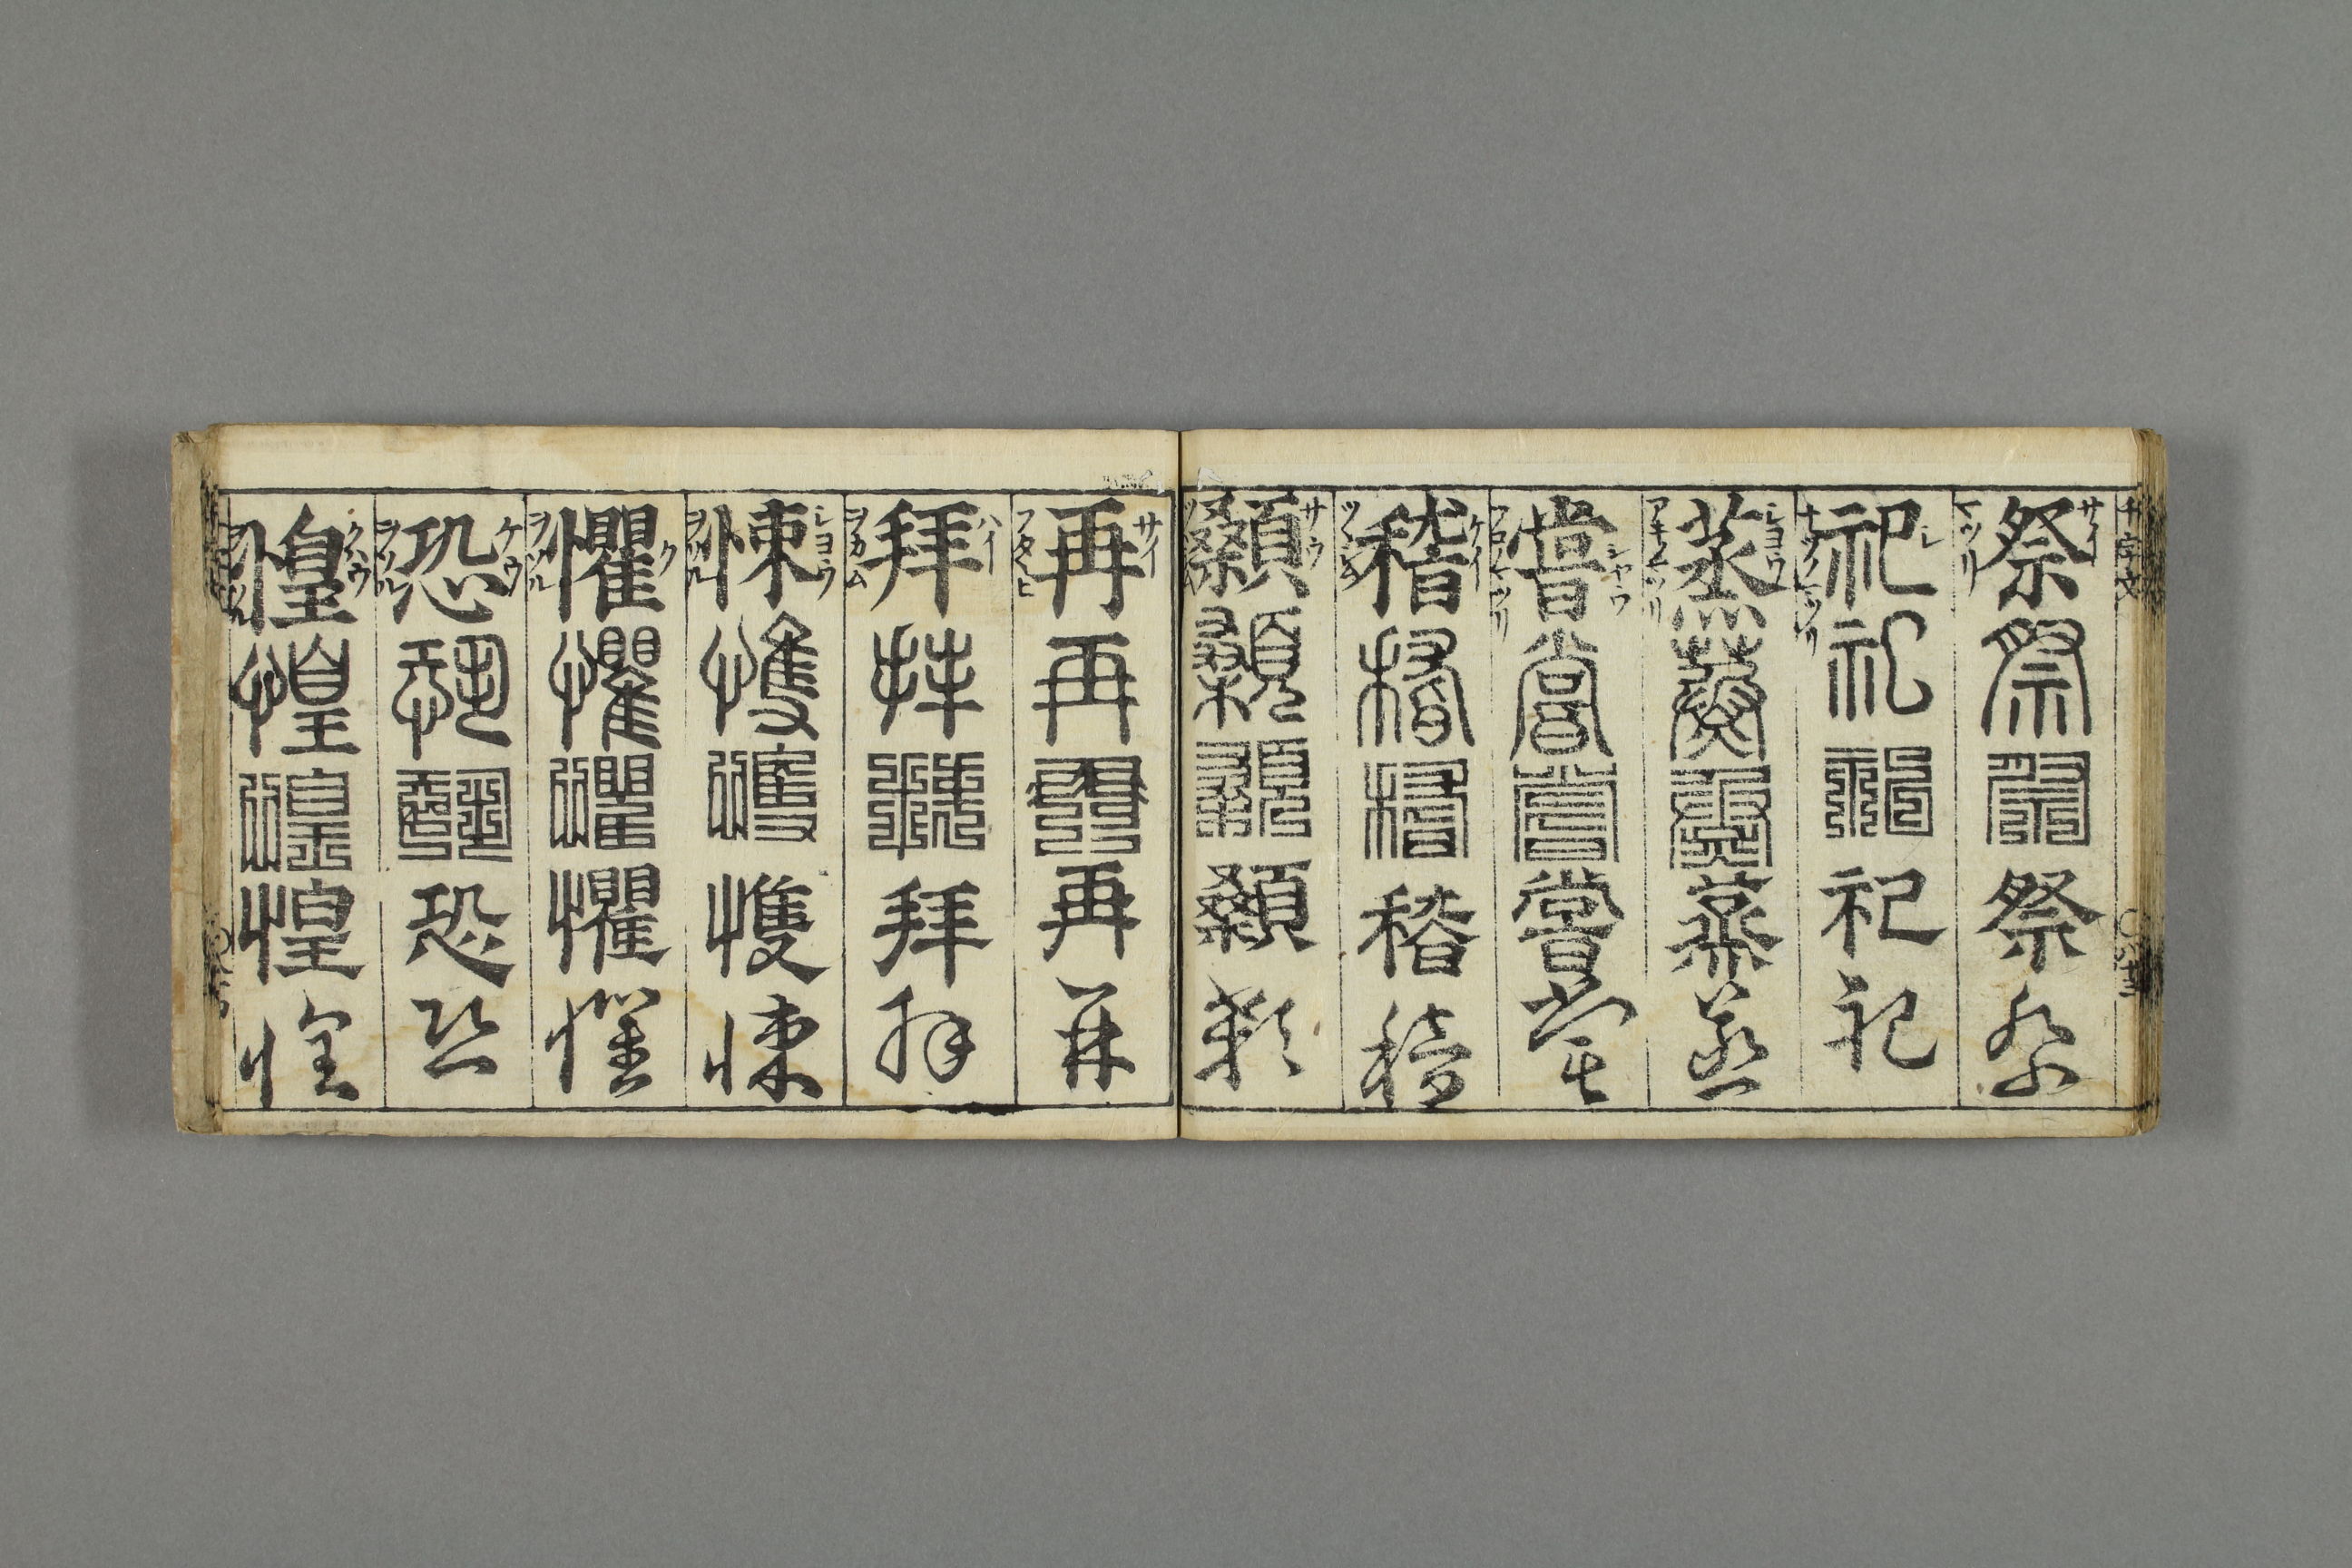 千字文
サイ
祭祭祭祭祭
マツリ
シ
祀祀祀祀祀
ナツノマツリ
シヨウ
蒸蒸蒸蒸蒸
アキノマツリ
シヤウ
嘗嘗嘗嘗嘗
フユノマツリ
ケイ
稽稽稽稽稽
ツヽシム
サウ
顙顙顙顙顙
サイ
再再再再再
フタヽヒ
ハイ
拜拜拜拜拜
ヲカム
シヨウ
悚愯愯愯悚
ヲソルル
ク
懼懼懼懼懼
ヲソルル
ケウ
恐恐恐恐恐
ヲソルル
クハウ
惶惶惶惶惶